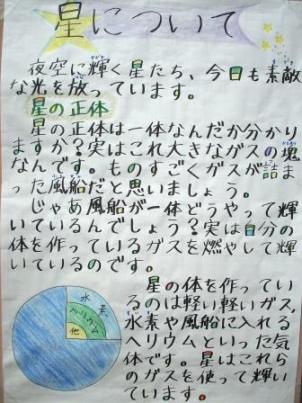 星について
夜空に輝く星たち、今日も素敵
な光を放っています。
星の正体
星の正体は一体なんだか分かり
ますか?実はこれ大きなガスの塊
なんです。ものすごくガスが詰ま
った風船だと思いましょう。
じゃあ風船が一体どうやって輝
いているんでしょう?実は自分の
体を作っているガスを燃やして輝
いているのです。
星の体を作ってい
るのは軽い軽いガス、
水素や風船に入れる
ヘリウムといった気
体です。星はこれら
のガスを使って輝い
ています。
水素
ヘリウム
他